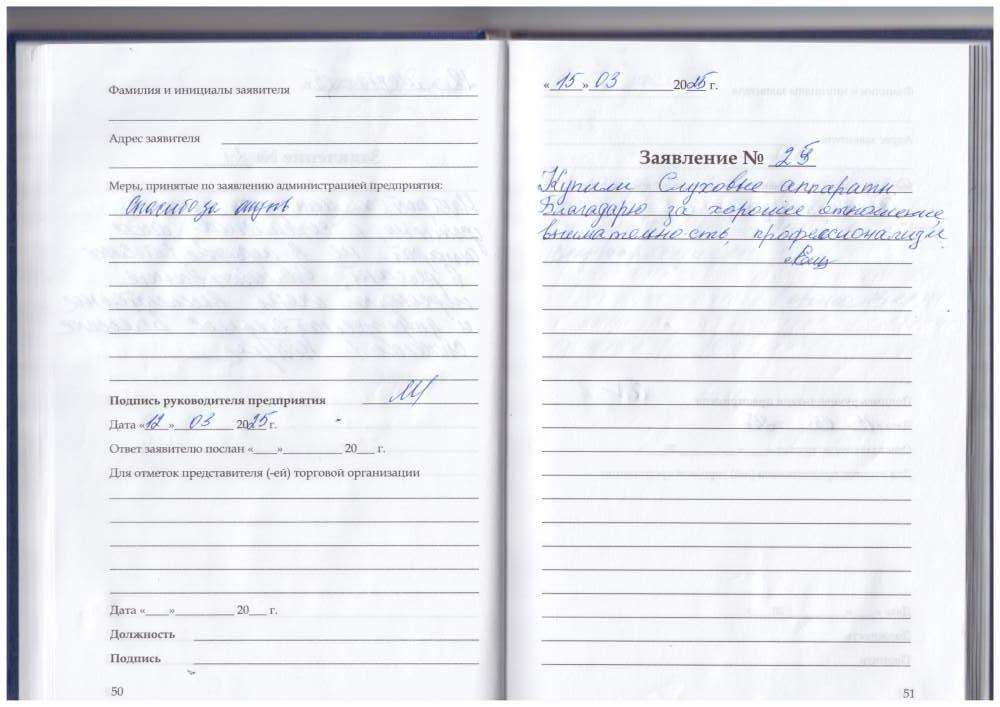 Фамилия и инициалы заявителя
Адрес заявителя
Меры, принятые по заявлению администрацией предприятия:
Спасибо за отзыв
Подпись руководителя предприятия
Дата «12» 03 2025 г.
Ответ заявителю послан «___»__________ 20___ г.
Для отметок представителя (-ей) торговой организации
Дата «____»__________ 20___ г.
Должность
Подпись
50
«15» 03 2025 г.
Заявление № 25
Купили Слуховые аппараты
Благодарю за хорошее отношение,
внимательность, профессионализм.
51